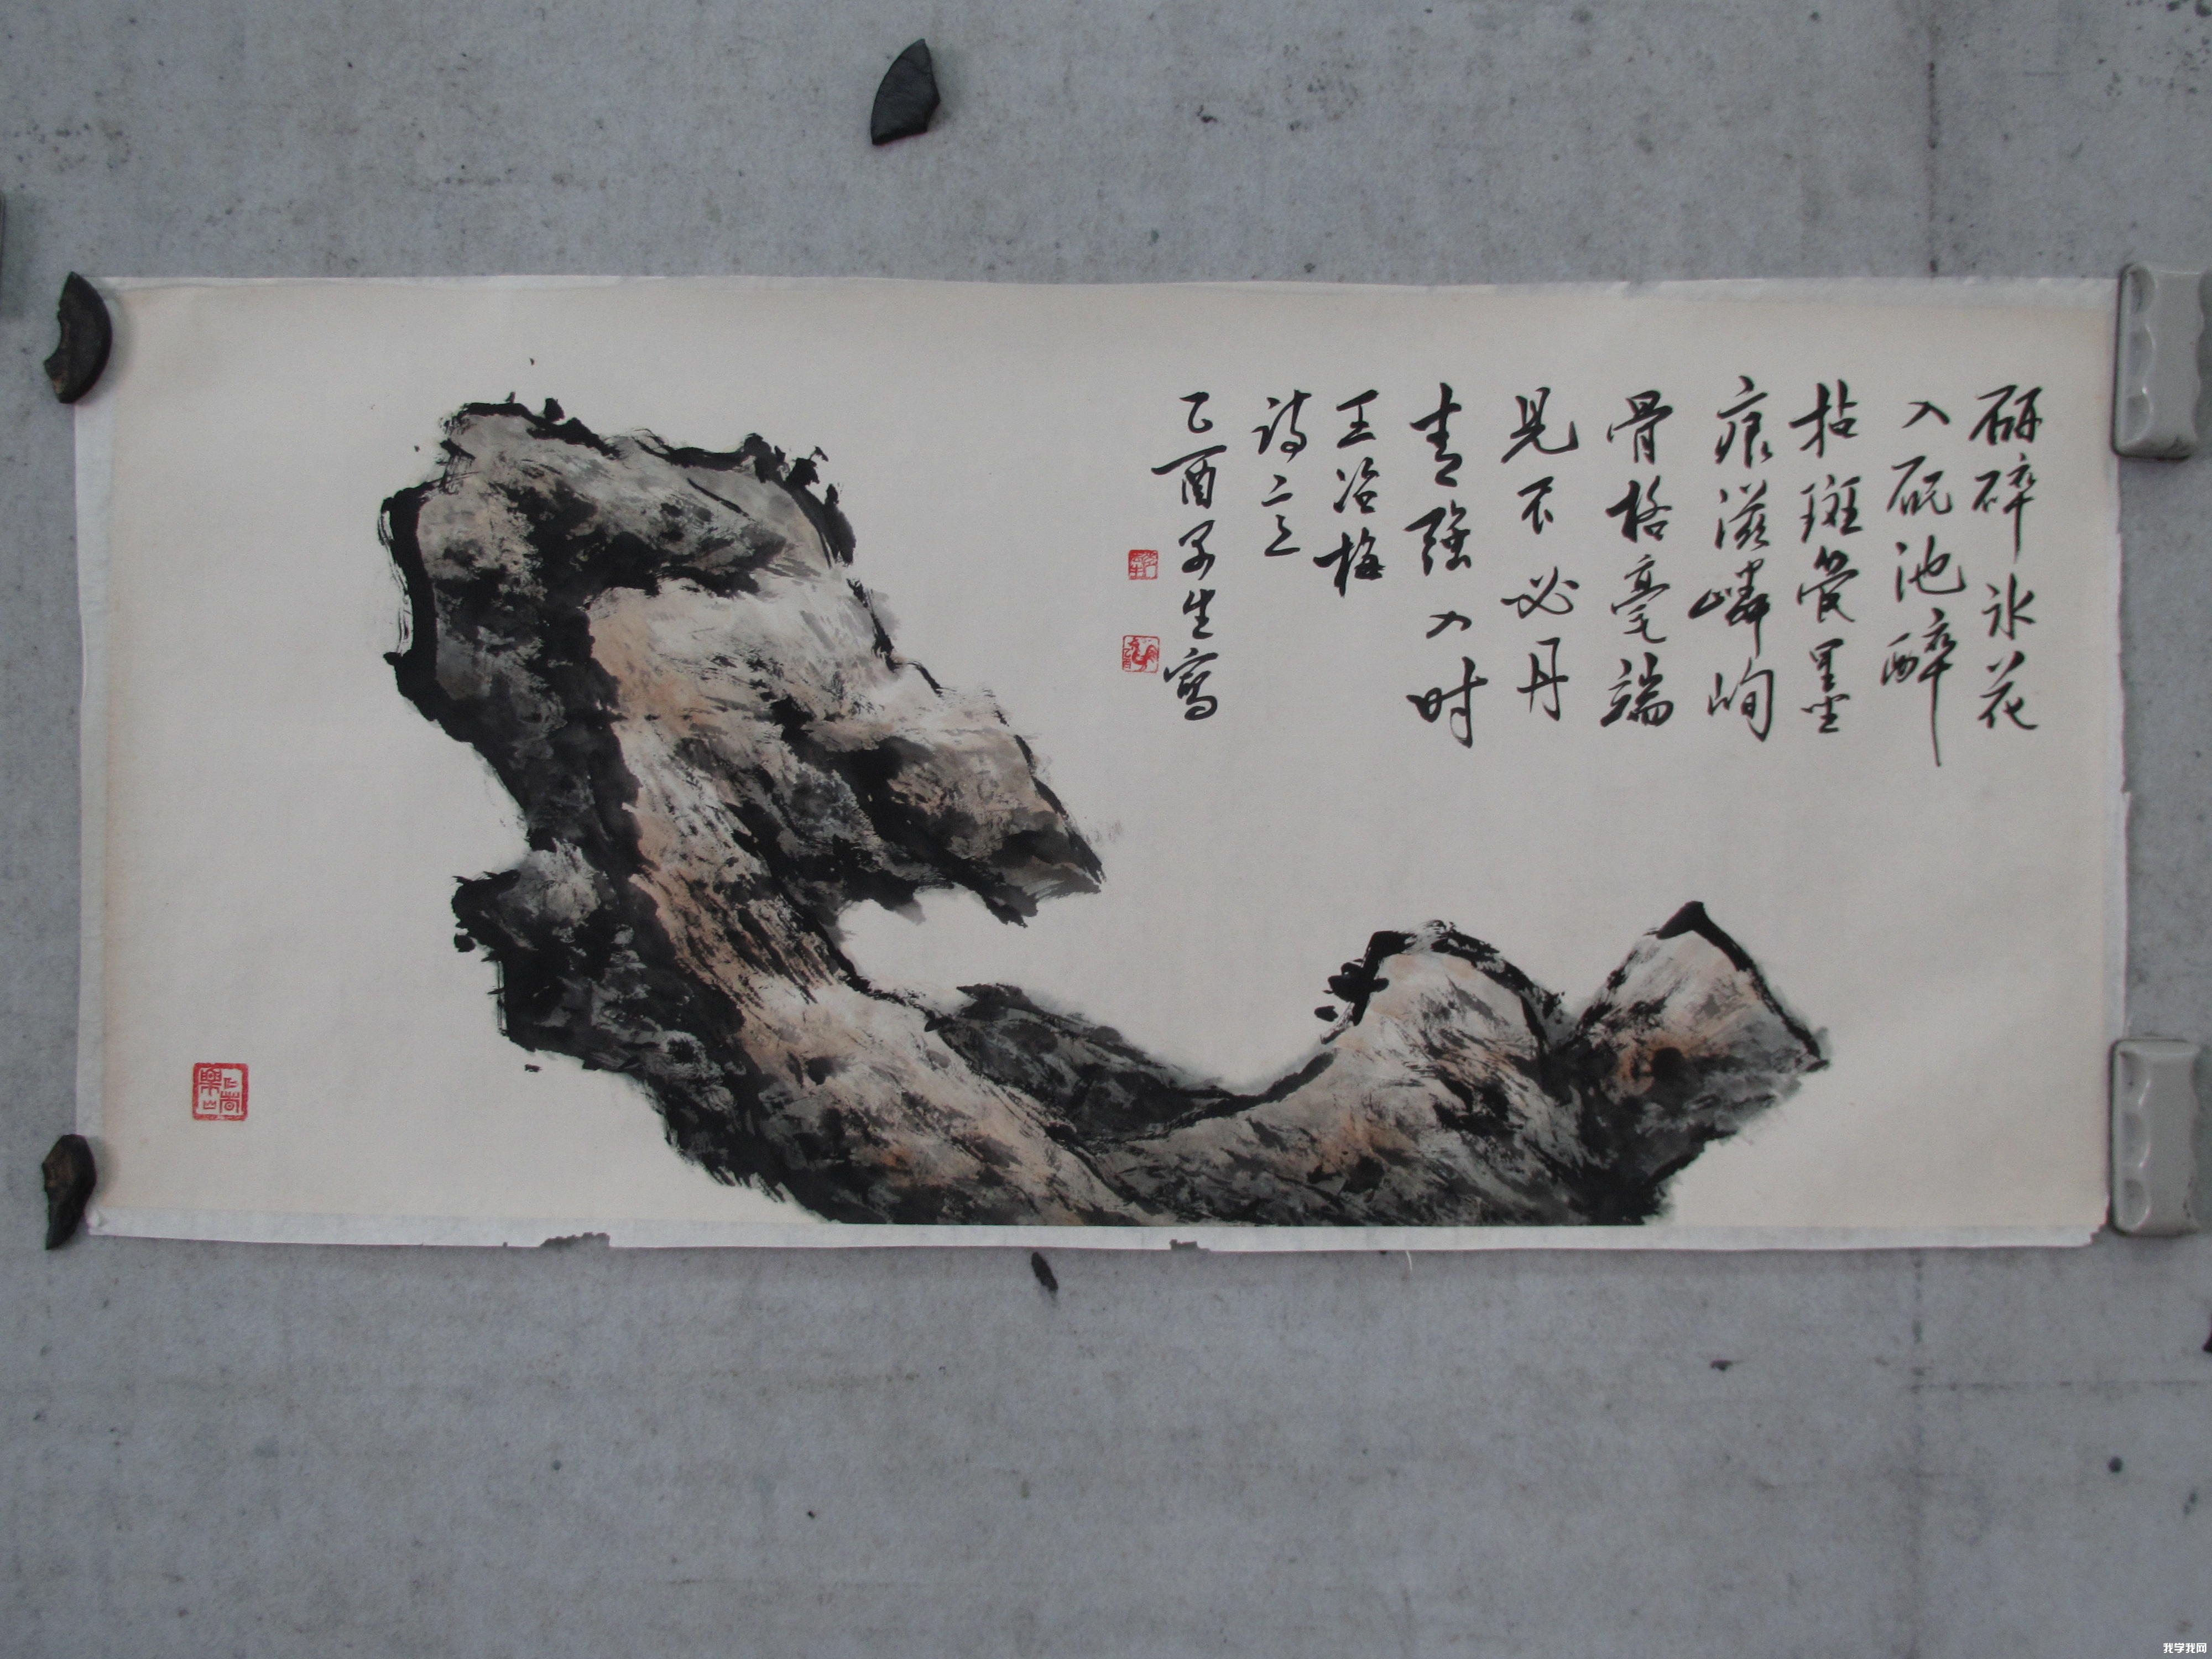 研碎冰花
入砚池醉
拈斑管墨
痕滋嶙峋
骨格毫端
見不必丹
青强入时
王冶梅
诗二之
乙酉生寫
我学我网